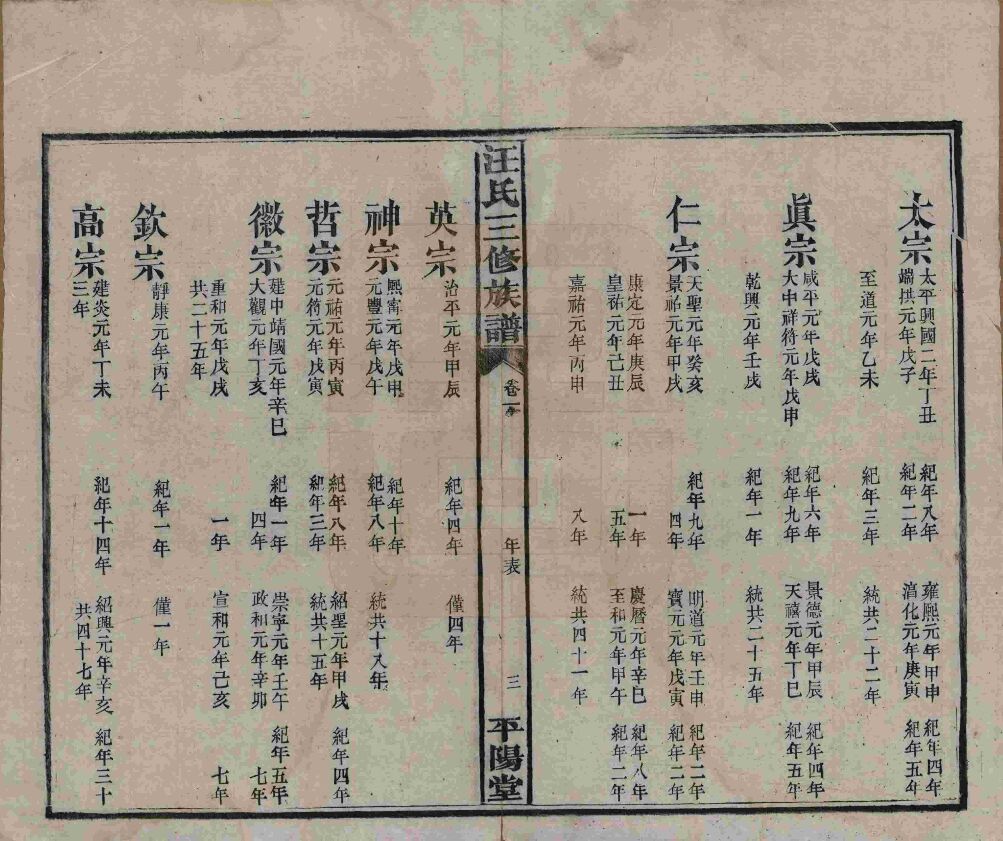 太宗
太平興國二年丁丑　紀年八年　雍熙元年甲申　紀年四年
端拱元年戊子　紀年二年　淳化元年庚寅　紀年五年
至道元年乙未　紀年三年　統共二十二年
眞宗
咸平元年戊戌　紀年六年　景德元年甲辰　紀年四年
大中祥符元年戊申　紀年九年　天禧元年丁巳　紀年五年
乾興元年壬戌　紀年一年　統共二十五年
仁宗
天聖元年癸亥　紀年九年　明道元年壬申　紀年二年
景祐元年甲戌　四年　寶元元年戊寅　紀年二年
康定元年庚辰　一年　慶曆元年辛巳　紀年八年
皇祐元年己丑　五年　至和元年甲午　紀年二年
嘉祐元年丙申　八年　統共四十一年
汪氏三修族譜　卷一　年表　三　平陽堂
英宗
治平元年甲辰　紀年四年　僅四年
神宗
熙甯元年戊申　紀年十年　統共十八年
元豐元年戊午　紀年八年
哲宗
元祐元年丙寅　紀年八年　紹聖元年甲戌　紀年四年
元符元年戊寅　紀年三年　統共十五年
徽宗
建中靖國元年辛巳　紀年一年　崇寧元年壬午　紀年五年
大觀元年丁亥　四年　政和元年辛卯　七年
重和元年戊戌　一年　宣和元年己亥　七年
共二十五年
欽宗
靖康元年丙午　紀年一年　僅一年
高宗
建炎元年丁未　紀年十四年　紹興元年辛亥　紀年三十
三年　共四十七年